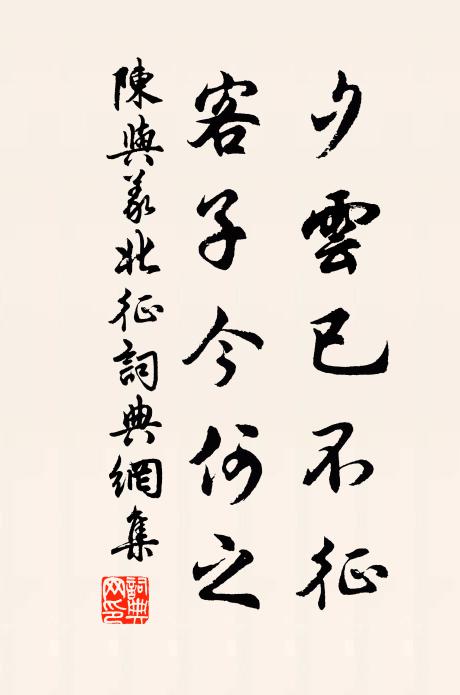 夕雲已不征
客子今何之
陳與義北征詞典網集
詞典网印